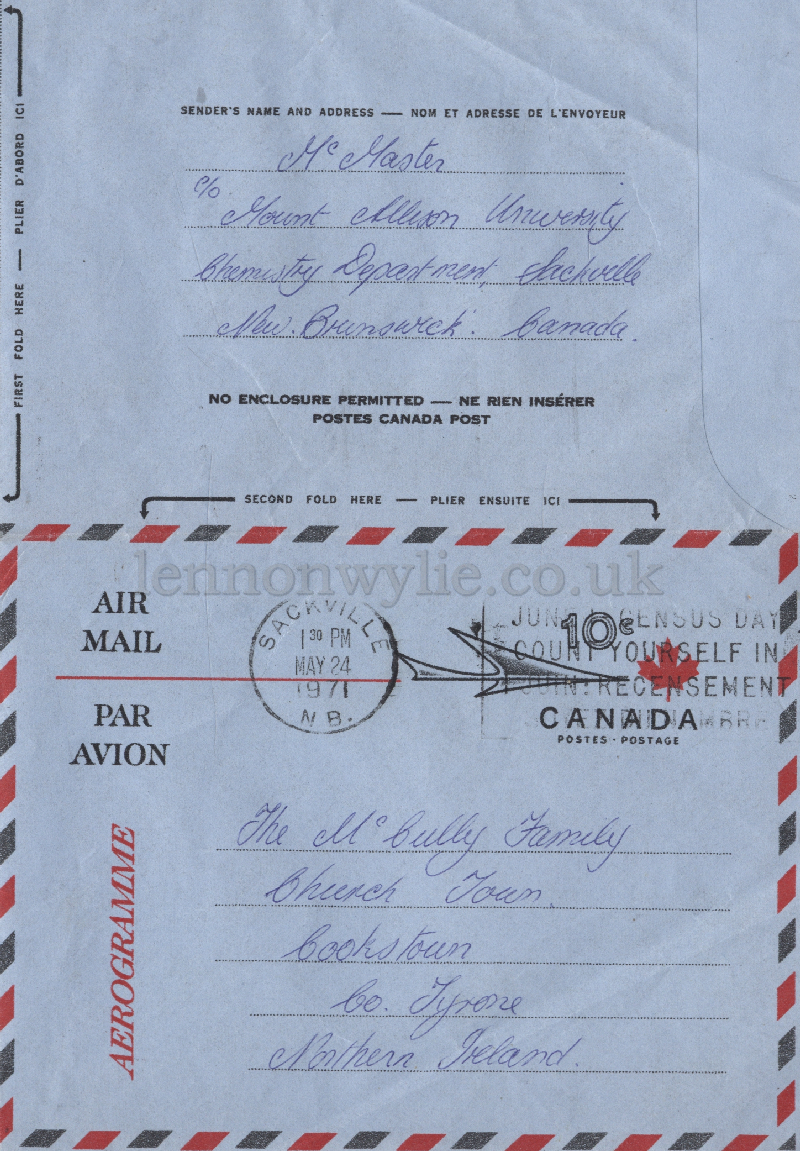 SENDER'S NAME AND ADDRESS — NOM ET ADRESSE DE L'ENVOYEUR
Mc Master
c/o
Mount Allison University
Chemistry Department, Sackville
New. Brunswick. Canada.
NO ENCLOSURE PERMITTED — NE RIEN INSÉRER
POSTES CANADA POST
FIRST FOLD HERE — PLIER D'ABORD ICI
SECOND FOLD HERE — PLIER ENSUITE ICI
lennonwylie.co.uk
AIR
MAIL
PAR
AVION
SACKVILLE
1 30 PM
MAY 24
1971
N B.
JUNE 1 CENSUS DAY
COUNT YOURSELF IN
JUIN: RECENSEMENT
10c
CANADA
POSTES · POSTAGE
AEROGRAMME
The Mc Cully Family
Church Town.
Cookstown
Co. Tyrone
Northern Ireland.